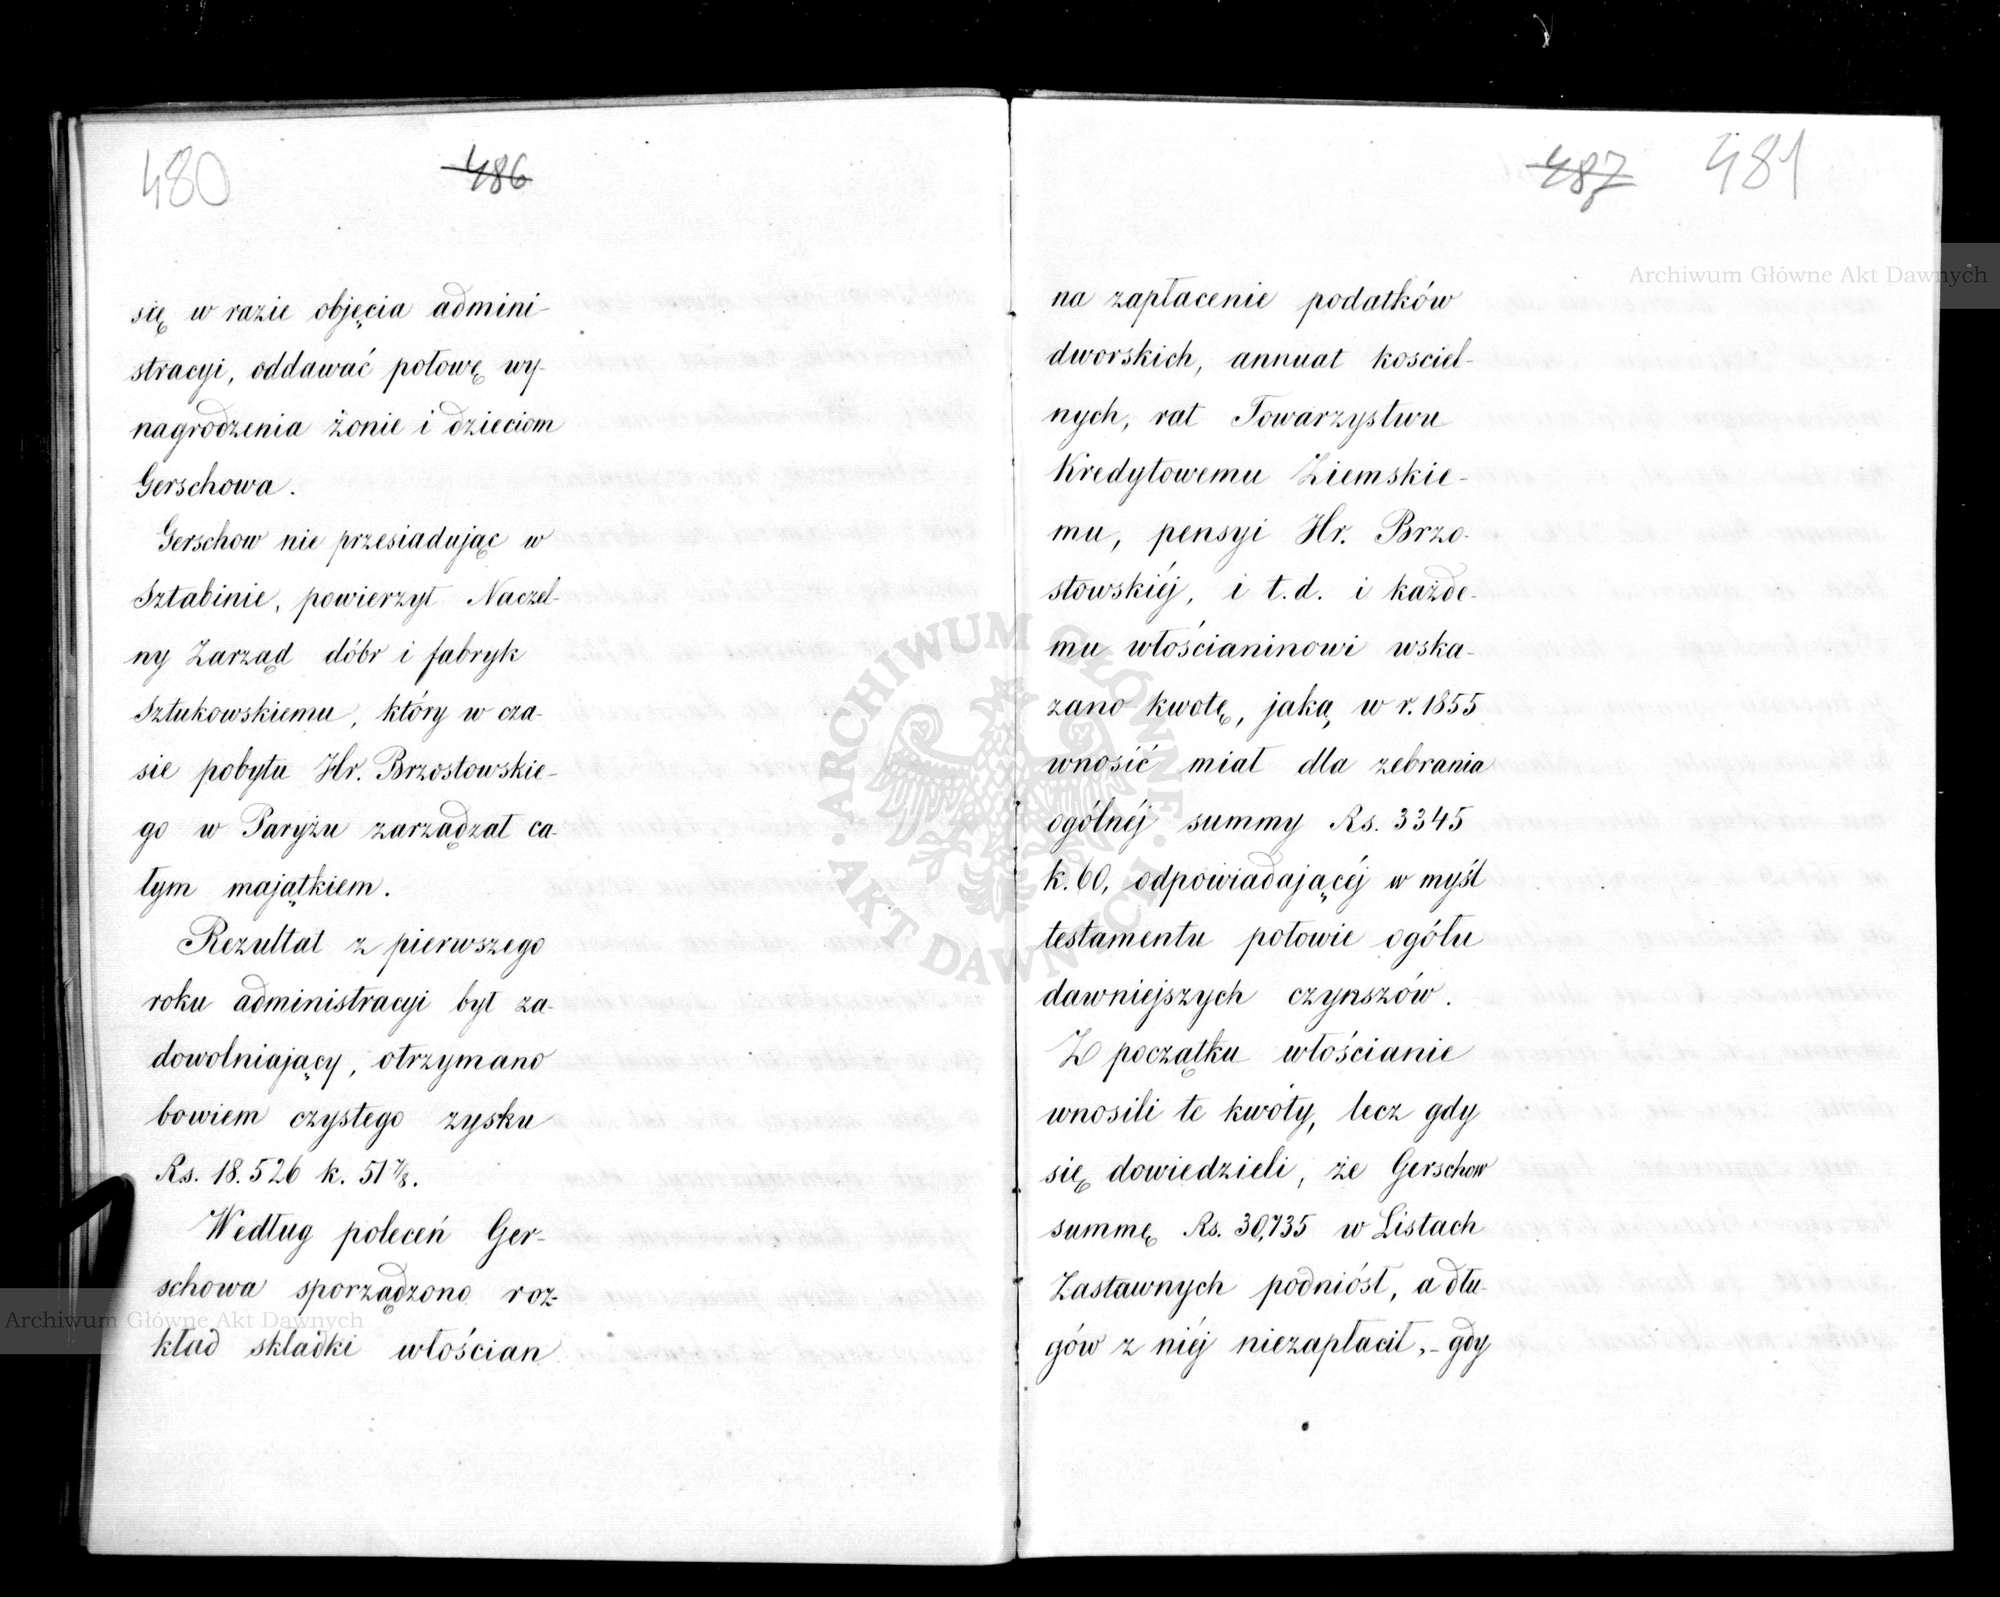 480
486
się w razie objęcia admini-
stracyi, oddawać połowę wy-
nagrodzenia żonie i dzieciom
Gerschowa.
Gerschow nie przesiadując w
Sztabinie, powierzył Naczel-
ny Zarząd dóbr i fabryk
Sztukowskiemu, który w cza-
sie pobytu Hr. Brzostowskie-
go w Paryżu zarządzał ca-
łym majątkiem.
Rezultat z pierwszego
roku administracyi był za-
dowolniający, otrzymano
bowiem czystego zysku
Rs. 18.526 k. 51 7/8.
Według poleceń Ger-
schowa sporządzono roz-
kład składki włościan
487 481
na zapłacenie podatków
dworskich, annuat kosciel-
nych, rat Towarzystwu
Kredytowemu Ziemskie-
mu, pensyi Hr. Brzo-
stowskiéj, i t.d. i każde-
mu włościaninowi wska-
zano kwotę, jaką w r. 1855
wnosić miał dla zebrania
ogólnéj summy Rs. 3345
k. 60, odpowiadającéj w myśl
testamentu połowie ogółu
dawniejszych czynszów.
Z początku włościanie
wnosili te kwoty, lecz gdy
się dowiedzieli, że Gerschow
summę Rs. 30,735 w Listach
Zastawnych podniósł, a dłu-
gów z niéj niezapłacił, - gdy
Archiwum Główne Akt Dawnych
ARCHIWUM GŁÓWNE AKT DAWNYCH
Archiwum Główne Akt Dawnych